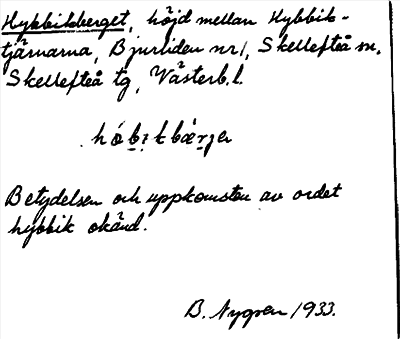 Hybbikberget, höjd mellan Hybbik-
tjärnarna, Bjurliden nr 1, Skellefteå sn,
Skellefteå tg, Västerb. l.
Betydelsen och uppkomsten av ordet
hybbik okänd.
B. Nygren 1933.